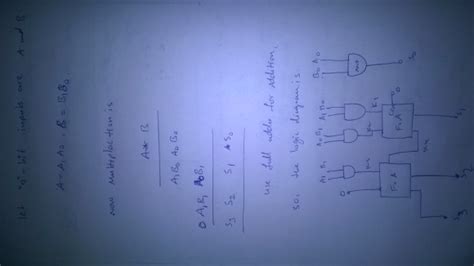 Let "2"-bit inputs are A and B
A = A₁ A₀ . B = B₁ B₀
now multiplication is
A × B
A₁B₀ A₀B₀
0 A₁B₁ A₀B₁
S₃ S₂ S₁ S₀
use full adder for addition,
so. the logic diagram is:
B₀ A₀
S₀
A₁ B₀
A₀ B₁
F.A
0
S₁
A₁ B₁
0
F.A
S₂
S₃